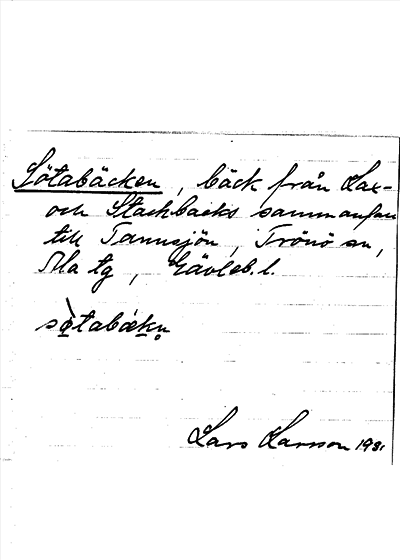 Götabäcken, bäck från Lax-
och Stackbäcks sammanflöde
till Tannsjön, Trönö sn,
Ala tg, Gävleb. l.
sötabäkn
Lars Larsson 1931